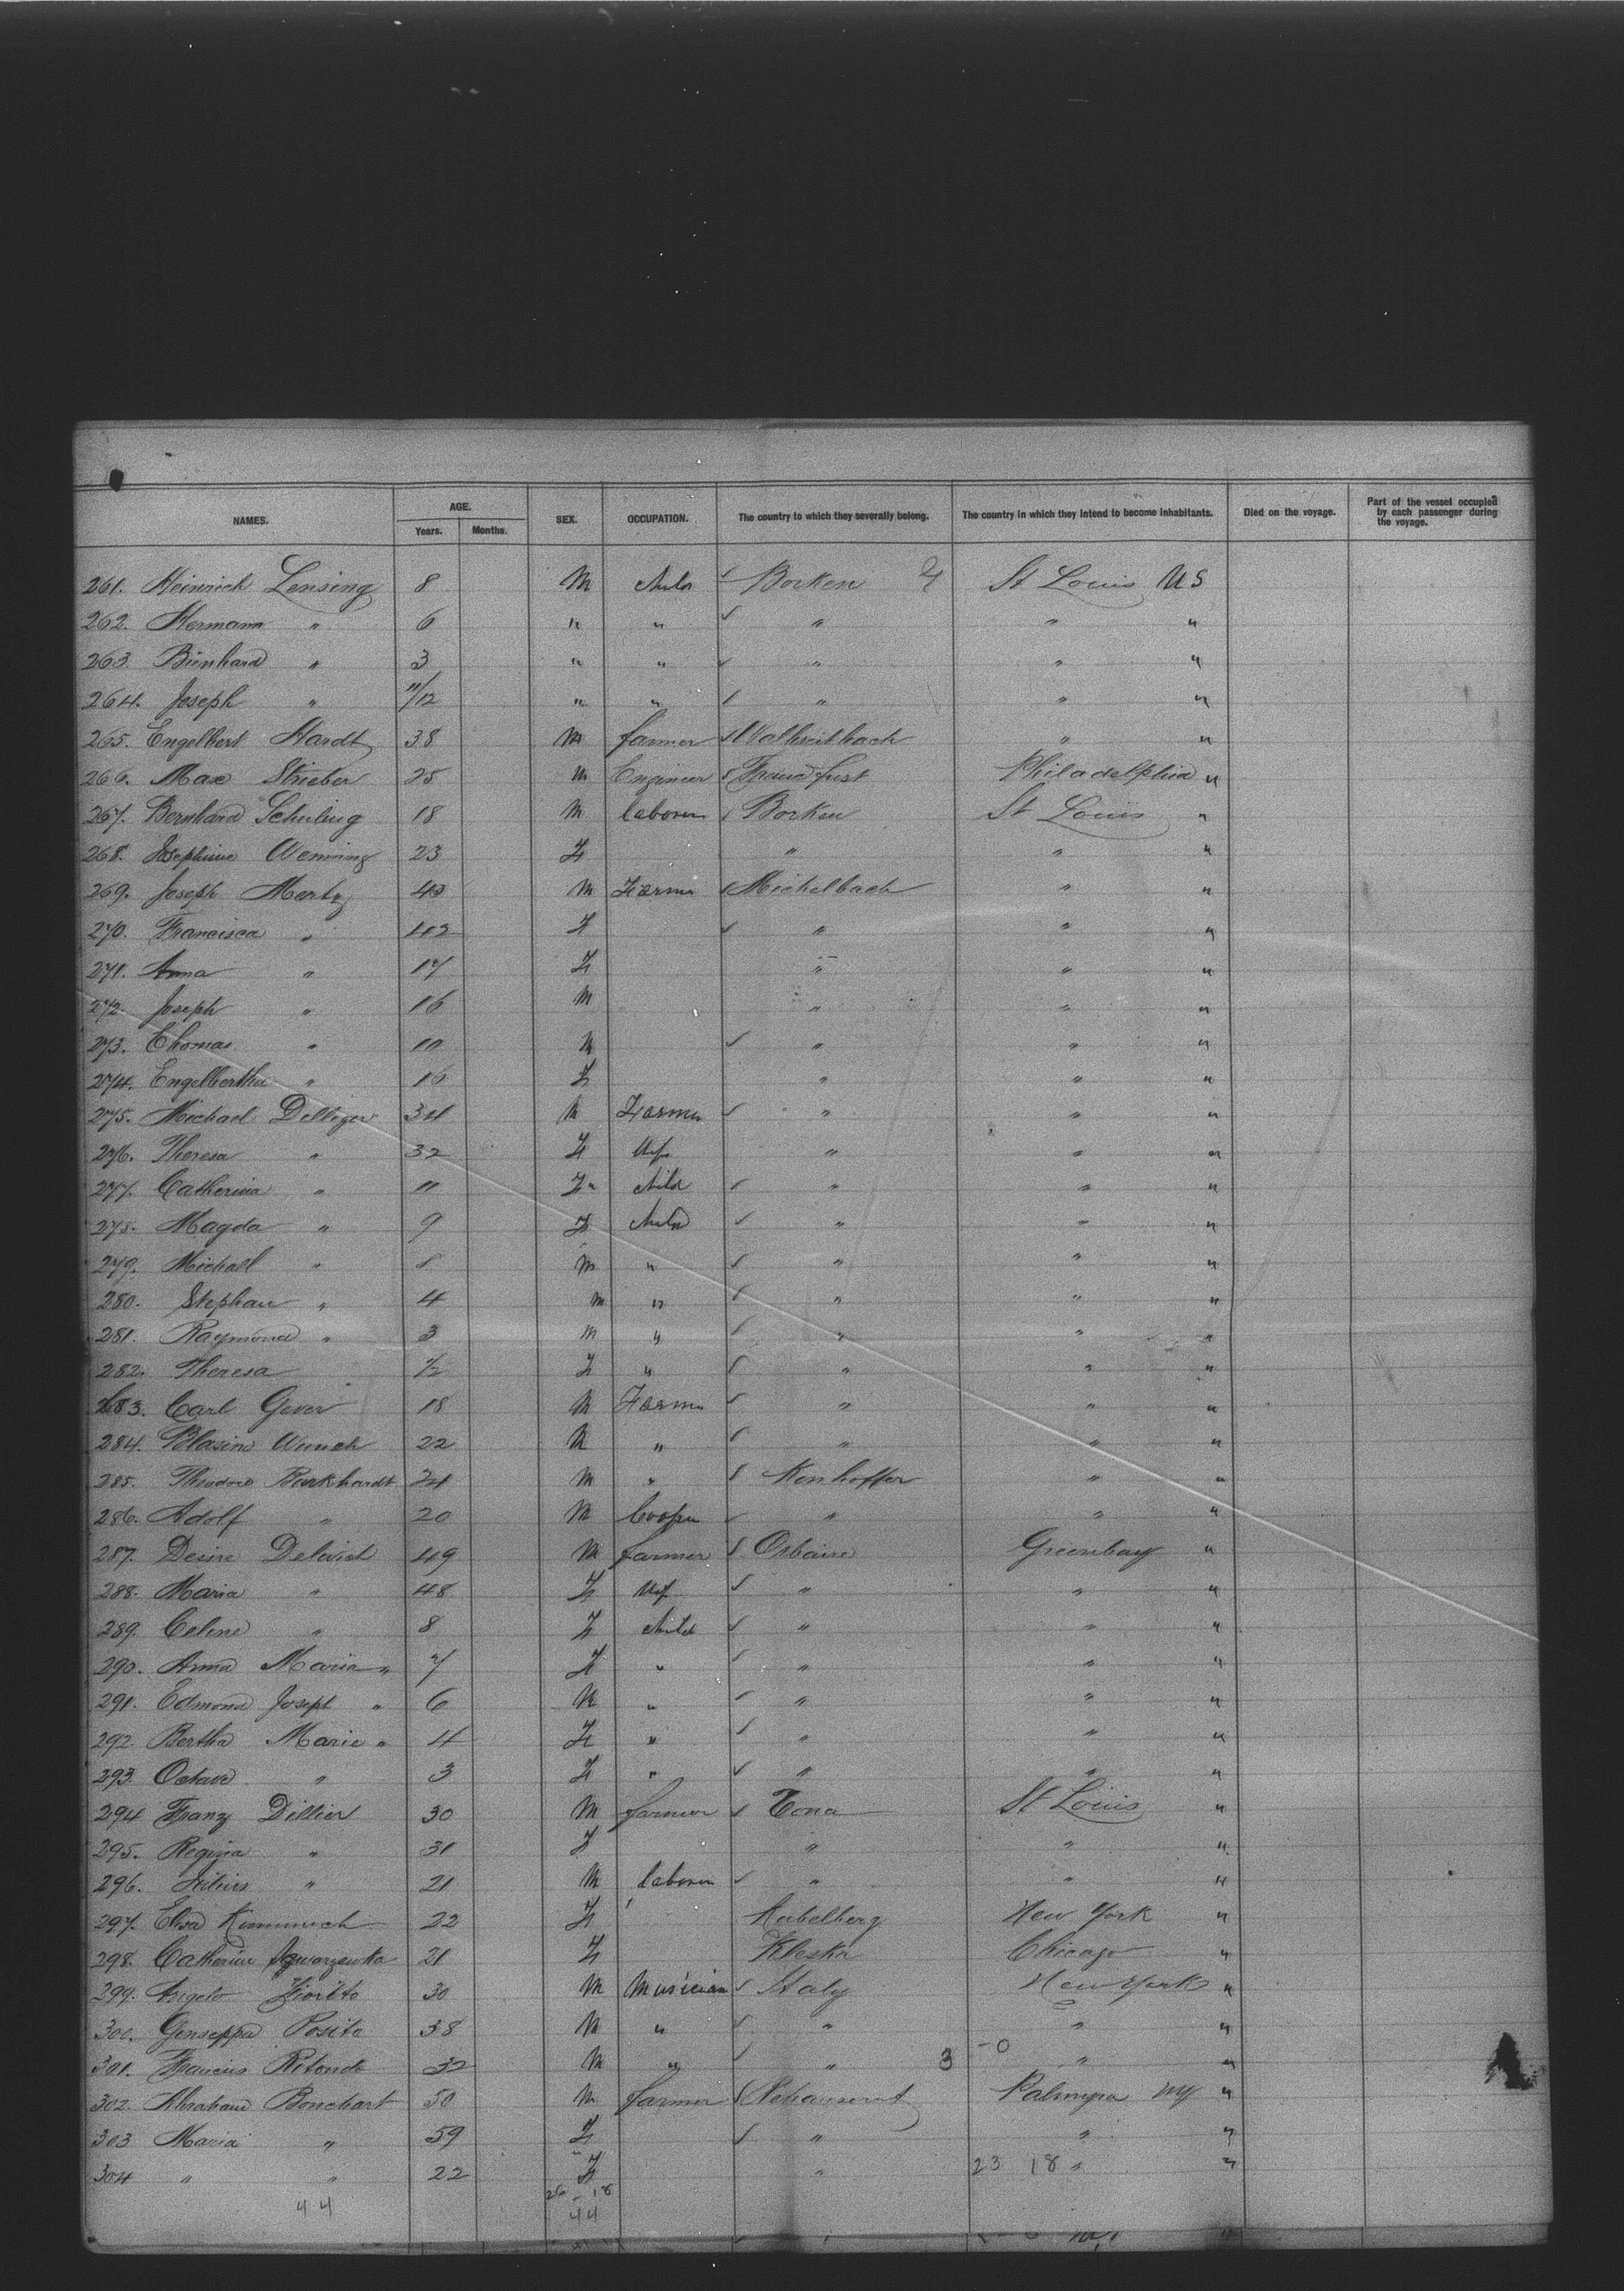 NAMES. AGE. SEX. OCCUPATION. The country to which they severally belong. The country in which they intend to become inhabitants. Died on the voyage. Part of the vessel occupied by each passenger during the voyage.
Years. Months.
261. Heinrich Lensing 8 M child Borken St Louis US
262. Hermann " 6 " " " " "
263. Bienhard " 3 " " " " "
264. Joseph " 11/12 " " " " "
265. Engelbert Hardt 38 M farmer " "
266. Max Strieber 25 M Engineer Philadelphia "
267. Bernhard Schuling 18 M laborer Borken St Louis "
268. Josephine Wenning 23 F " " "
269. Joseph Mertz 43 M Farmer Michelbach " "
270. Francisca " 42 F " " "
271. Anna " 17 F " " "
272. Joseph " 16 M " " "
273. Thomas " M " " "
274. Engelbertha " 16 F " " "
275. Michael Dellinger 34 M Farmer " " "
276. Theresa " 32 F Wife " " "
277. Catherina " 11 F child " " "
278. Magda " 9 F child " " "
279. Michael " 8 M " " " "
280. Stephan " 4 M " " " "
281. Raymond " 3 M " " " "
282. Theresa 1/2 F " " " "
283. Carl Gever 18 M Farmer " " "
284. Blasine Wunch 22 M " " " "
285. Theodore Burkhardt 24 M " Kenhoffer " "
286. Adolf " 20 M Cooper " " "
287. Desire Delvich 49 M farmer Greenbay "
288. Maria " 48 F Wife " " "
289. Celine " 8 F child " " "
290. Anna Maria " 7 F " " " "
291. Edmond Joseph " 6 M " " " "
292. Bertha Marie " 4 F " " " "
293. Octave " 3 F " " " "
294 Franz Dillier 30 M farmer St Louis "
295. Regina " 31 F " " "
296. " 21 M laborer " " "
297. Elisa Kimmich 22 F New York "
298. Catherine 21 F Chicago "
299. Angelo Fiorito 30 M Musician Italy New York "
300. Genseppa Posita 38 M " " " "
301. Francius Ritondo 32 M " " 3 - 0 " "
302. Abraham Bonchart 50 M farmer Palmyra NY "
303 Maria " 59 F " " "
304 " " 22 F " 23 18 " "
44 26 - 18
44